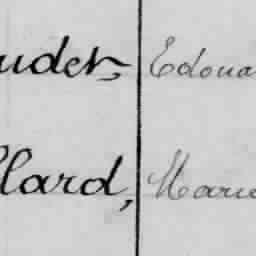 udet, Edoua
llard, Marie